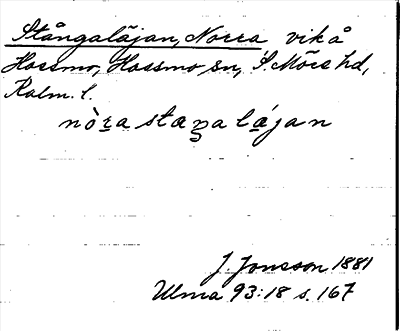 Stångaläjan, Norra vik å
Hossmo, Hossmo sn, S. Möre hd,
Kalm. l.
nòra staŋalájan
J. Jonsson 1881
Ulma 93:18 s. 167